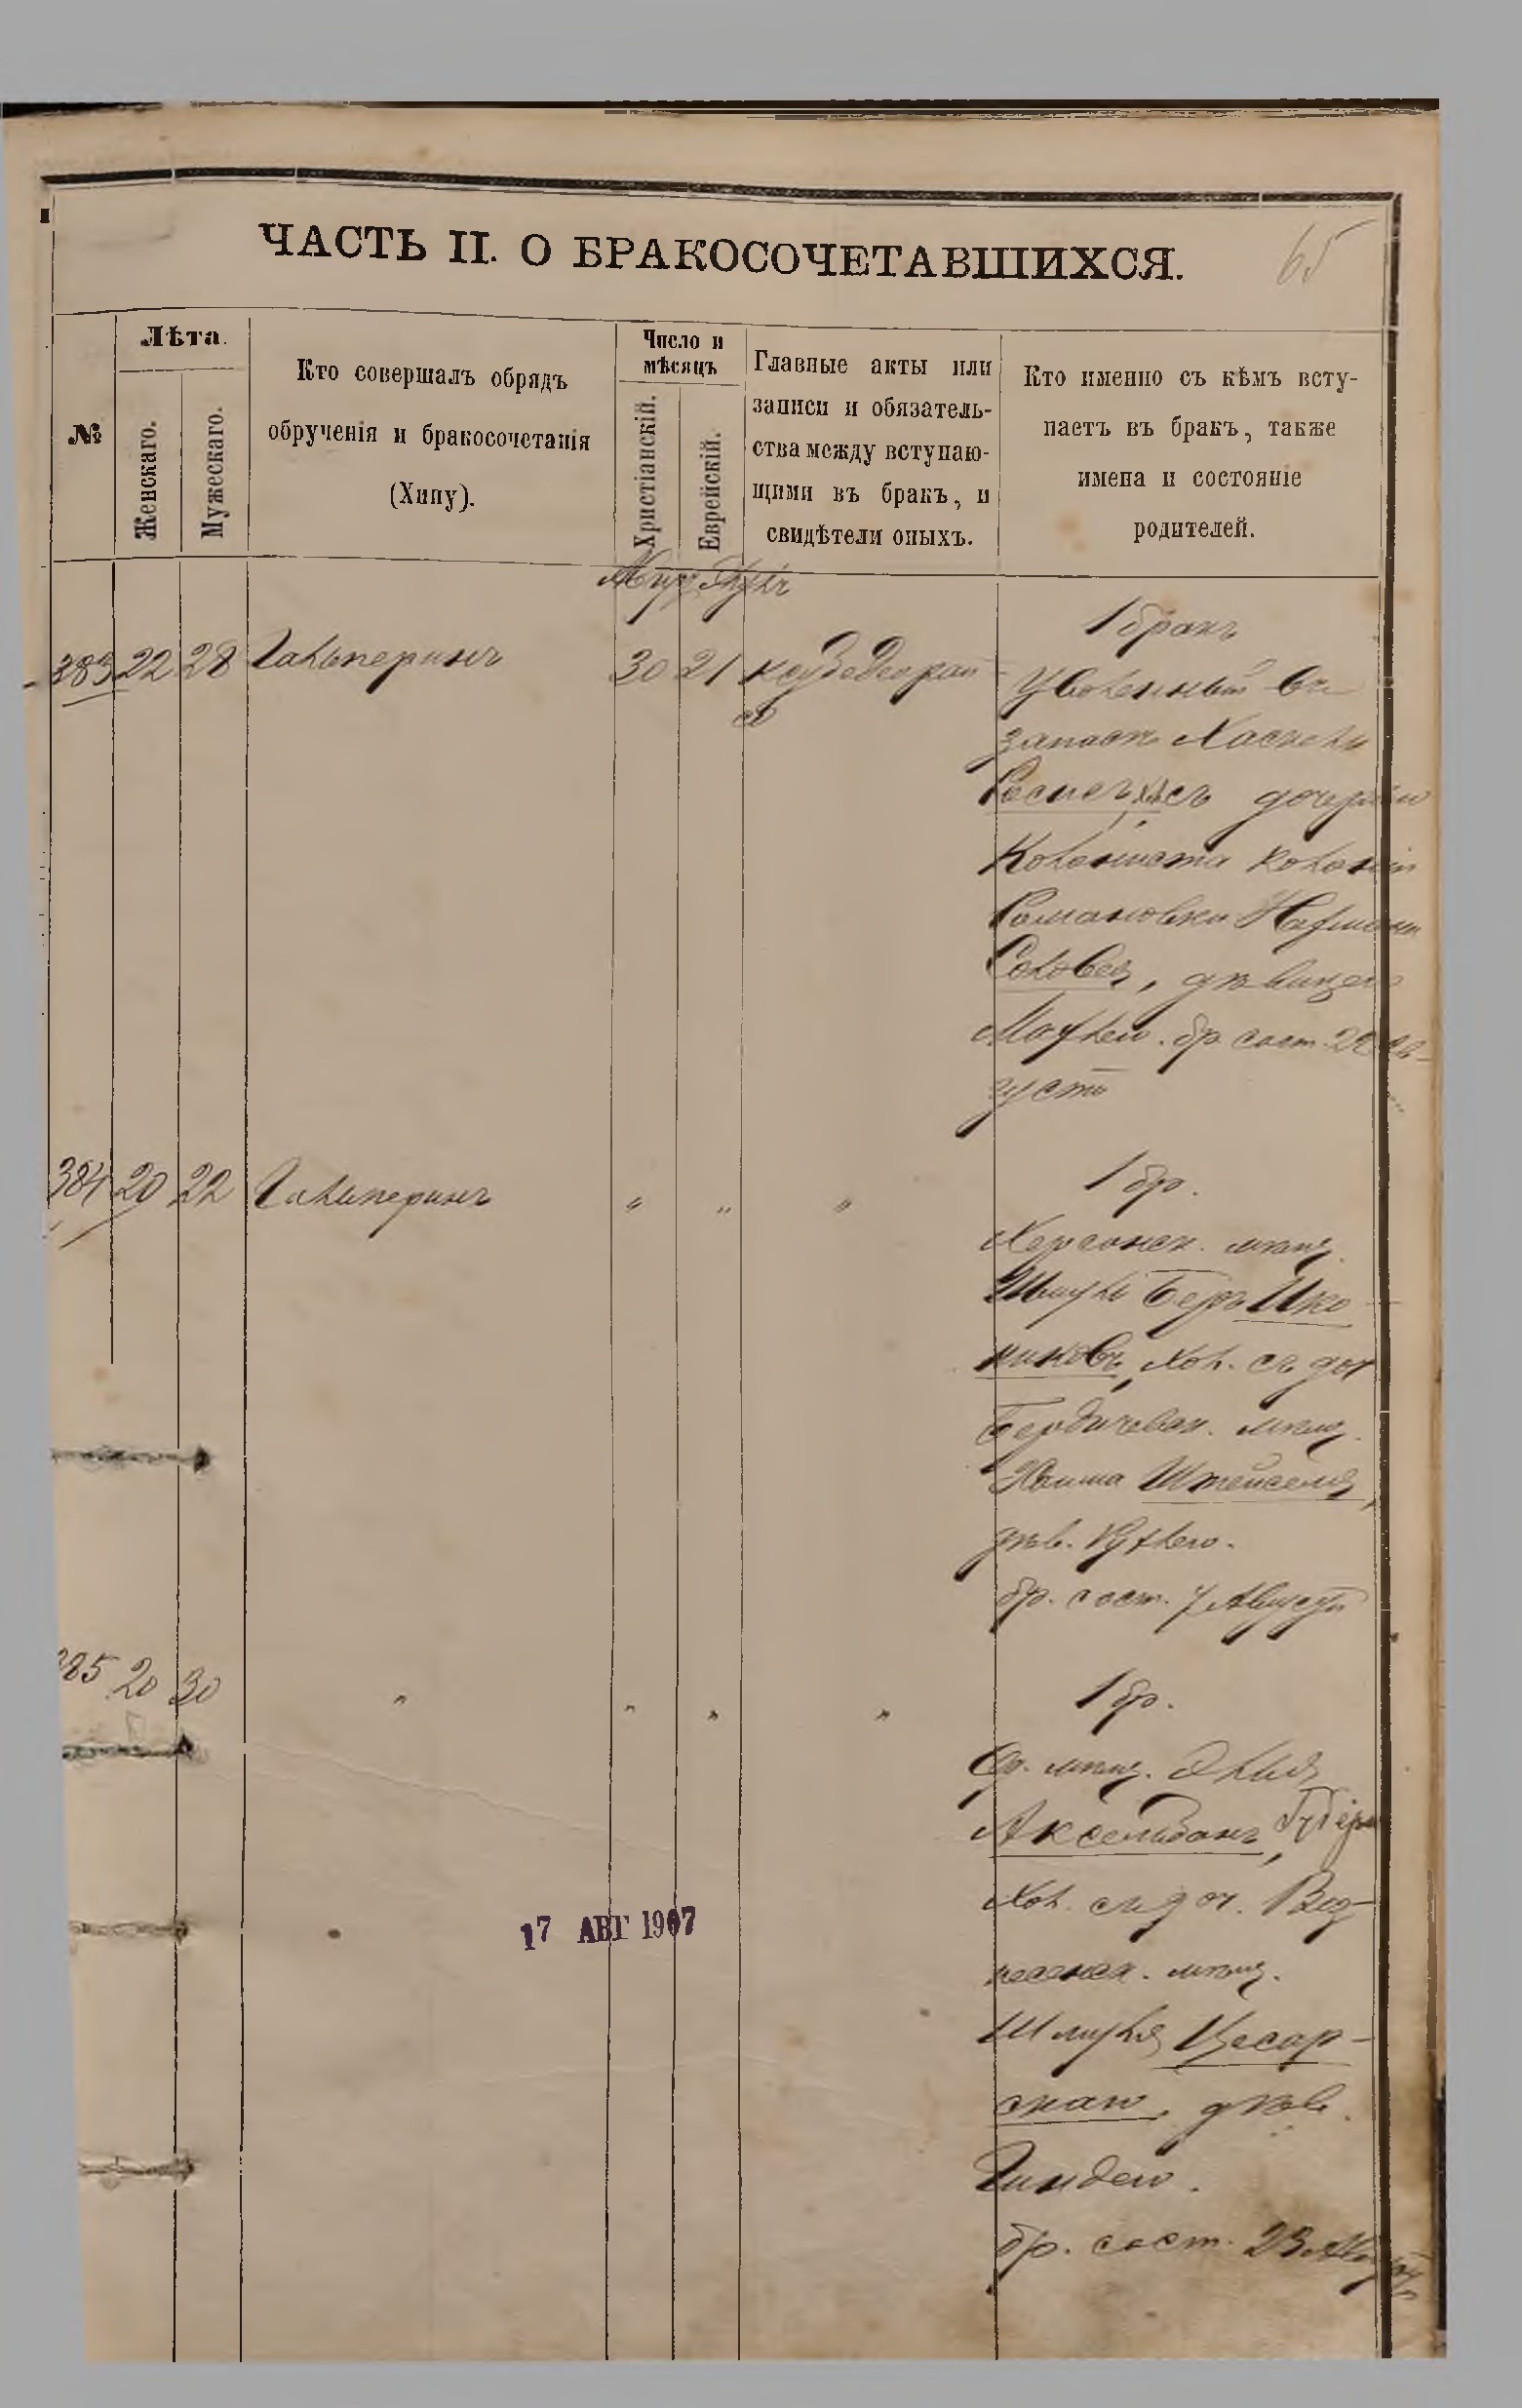 65
ЧАСТЬ II. О БРАКОСОЧЕТАВШИХСЯ.
№
Лѣта.
Женскаго.
Мужескаго.
Кто совершалъ обрядъ
обрученія и бракосочетанія
(Хипу).
Число и
мѣсяцъ
Христіанскій.
Еврейскій.
Главные акты или
записи и обязатель-
ства между вступаю-
щими въ бракъ, и
свидѣтели оныхъ.
Кто именно съ кѣмъ всту-
паетъ въ бракъ, также
имена и состояніе
родителей.
383 22 28 Гальперинъ 30 21
1 бракъ
Уволенный въ
запасъ Хаскель
съ дочерью
Колониста колоніи
Романовки
Соловей, дѣвицею
бр. сост. 22 Ав-
густа
384 20 22 Гальперинъ " " "
1 бр.
Херсонск. мѣщ.
Шмуль Беръ Ико
никовъ, хол. съ доч
Бердичевск. мѣщ.
Штейнселя,
дѣв. Рухлею.
бр. сост. 7 Августа
385 20 30 " " " "
1 бр.
мѣщ. Эльія
Аксельбантъ,
хол. съ доч. Воз-
несенск. мѣщ.
Шмуля Цесар-
скаго, дѣв.
Гиндею.
бр. сост. 23 Августа
17 АВГ 1907